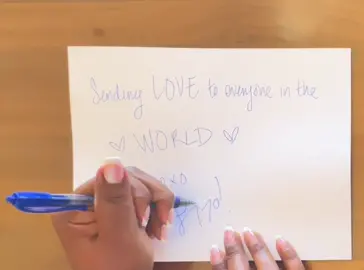 Sending LOVE to everyone in the
♡ WORLD ♡